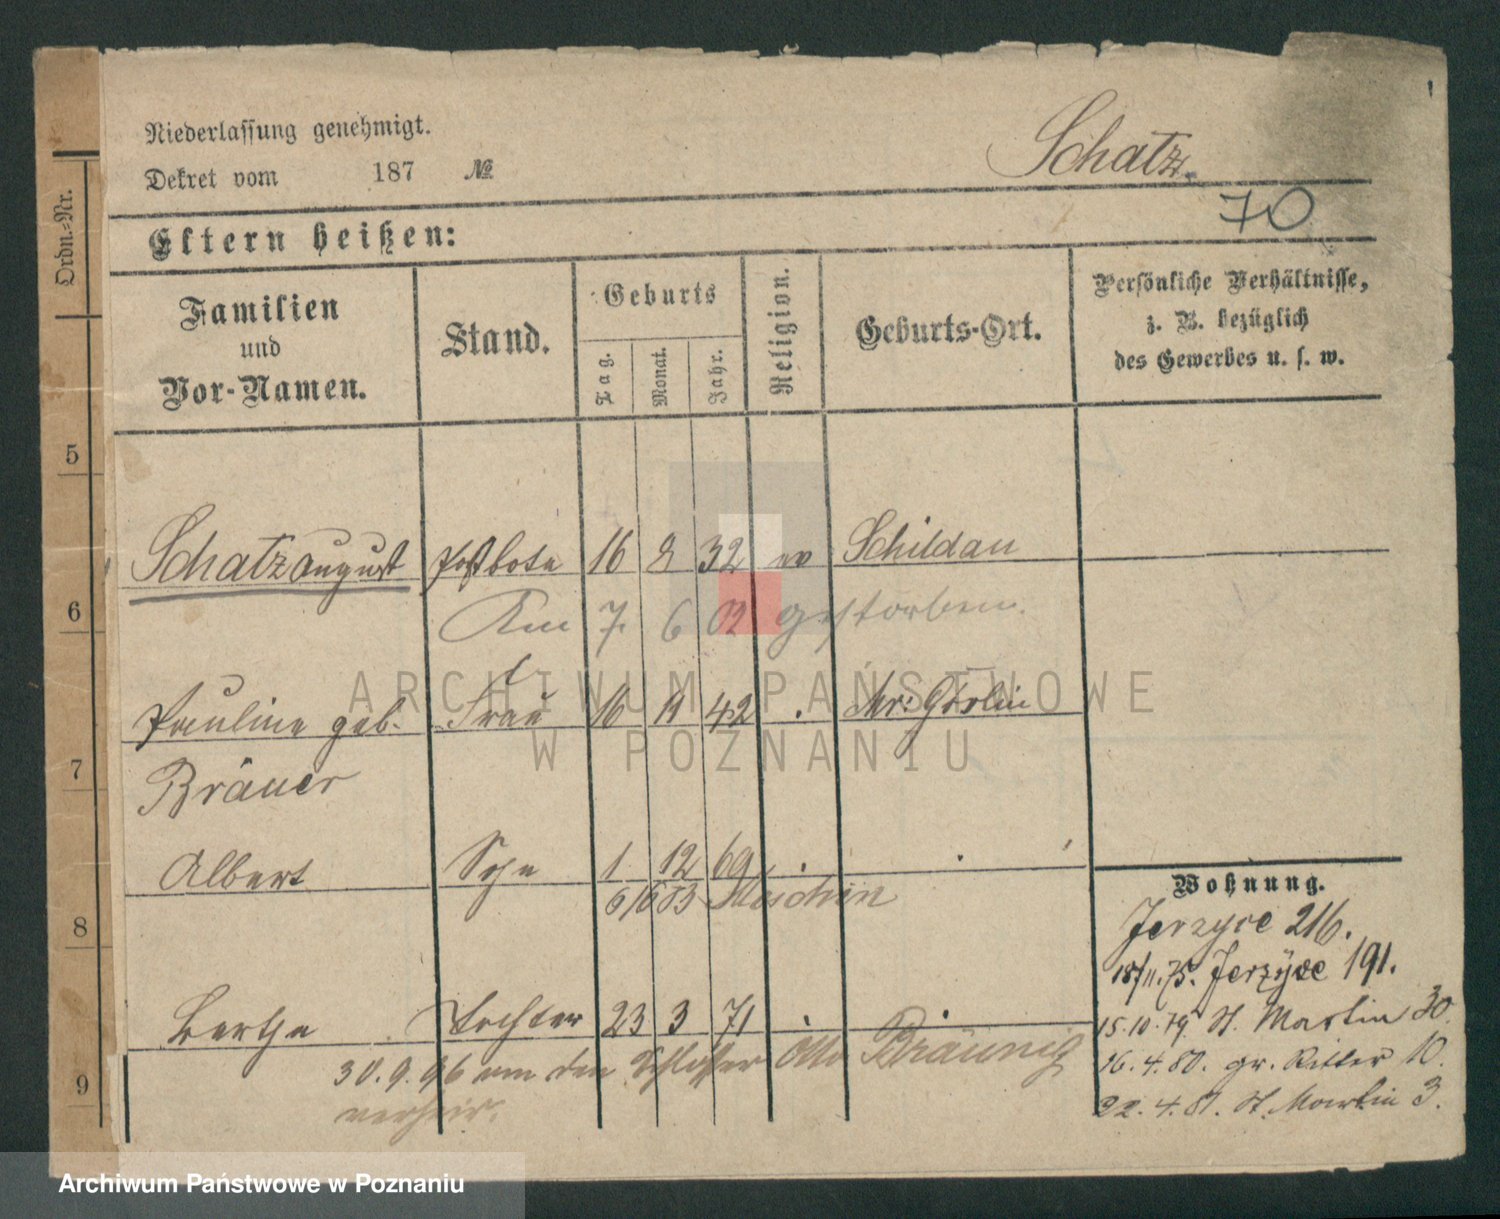 Niederlassung genehmigt.
Dekret vom 187 №
Schatz.
70
Eltern heißen:
Ordn.-Nr.
Familien und Vor-Namen.
Stand.
Geburts
Tag. Monat. Jahr.
Religion.
Geburts-Ort.
Persönliche Verhältnisse,
z. B. bezüglich
des Gewerbes u. s. w.
5
Schatz August Postbote 16 8 32 ev Schildau
6
Am 7. 6 02 gestorben.
Pauline geb. Frau 16 11 42 Görlin
7
Bräuer
Albert Sohn 1 12 69
6/6 83
8
Wohnung.
Jerzyce 216.
18/11.75. Jerzyce 191.
Bertha Tochter 23 3 71
15.10.79 St. Martin 30.
30.9.96 an den Schlosser Otto Bräunig
16.4.80. gr. Ritter 10.
9
verheir.
22.4.81. St. Martin 3.
ARCHIWUM PAŃSTWOWE
W POZNANIU
Archiwum Państwowe w Poznaniu